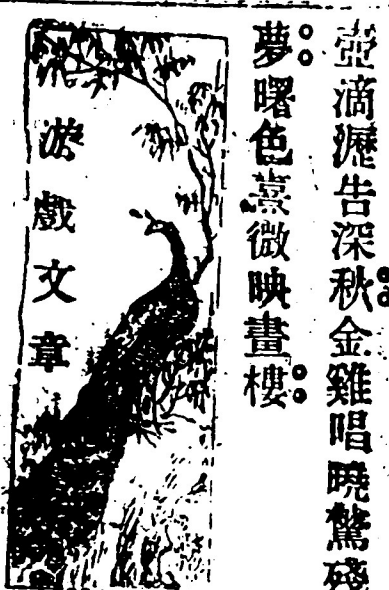 壺滴瀝告深秋金雞唱曉驚殘
夢曙色熹微映畫樓
游戲文章